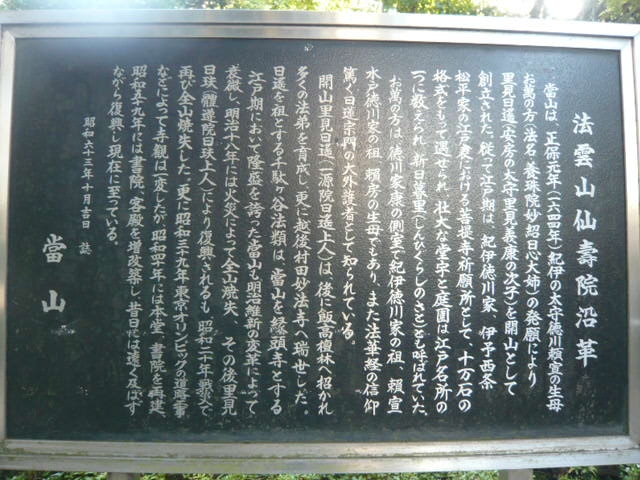 法雲山仙壽院沿革
當山は、正保元年(一六四四年)紀伊の太守徳川頼宣の生母
お萬の方(法名・養珠院妙紹日心大姉)の発願により
里見日遥(安房の太守里見義康の次子)を開山として
創立された。従って江戸期は、紀伊徳川家、伊予西条
松平家の江戸表における菩提寺・祈願所として、十万石の
格式をもって遇せられ、壮大な堂宇と庭園は江戸名所の
一つに数えられ、新日暮里(しんひぐらしのさと)とも呼ばれていた。
お萬の方は、徳川家康の側室で紀伊徳川家の祖、頼宣
水戸徳川家の祖、頼房の生母でもあり、また法華経の信仰
篤く日蓮宗門の大外護者として知られている。
開山里見日遥(一源院日遥上人)は、後に飯高檀林へ招かれ
多くの法弟を育成し、更に越後村田妙法寺へ瑞世した。
日遥を祖とする千駄ヶ谷法類は、當山を縁頭寺とする
江戸期において隆盛を誇った當山も明治維新の変革によって
衰微し、明治十八年には火災によって全山焼失、その後里見
日玞(體遵院日玞上人)により復興されるも、昭和二十年戦災で
再び全山焼失した。更に昭和三十九年、東京オリンピックの道路工事
などによって寺観は一変したが、昭和四年には本堂、書院を再建、
昭和五十九年には書院、客殿を増改築し、昔日には遠く及ばず
ながら復興し現在に至っている。
昭和六十三年十月吉日 誌
當山